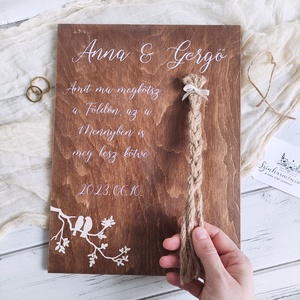 Anna & Gergő
Amit ma megkötsz
a Földön, az a
Mennyben is
meg lesz kötve
2023.06.10.